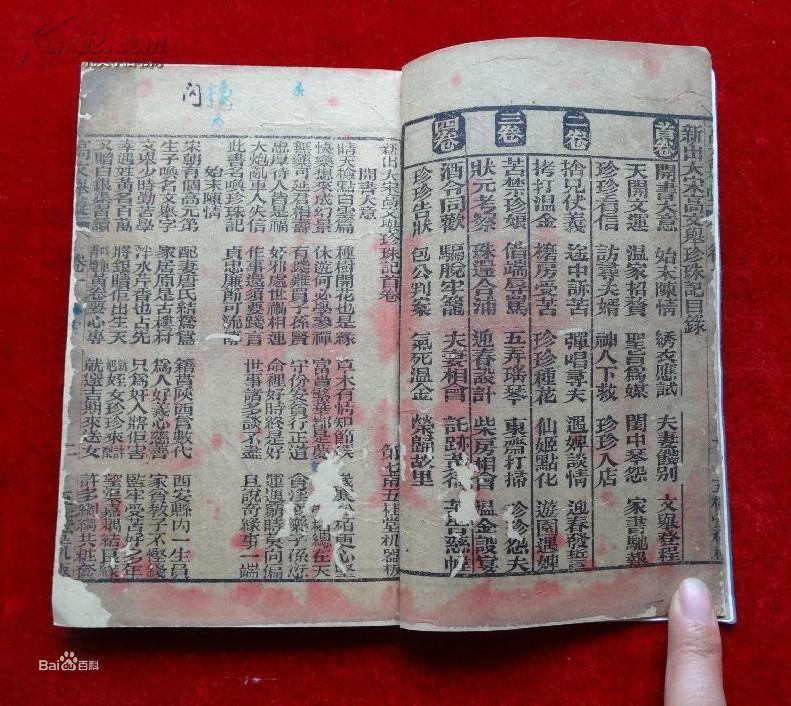 新出大宋高文舉珍珠記目錄
首卷
開書大意 始末陳情 綉衣應試 夫妻餞別 文舉登程
天開文運 溫家招贅 聖旨爲媒 閨中琴怨 家書馳報
珍珍看信 訪尋夫婿 神人下救 珍珍入店
二卷
捨兒伏義 途中訴苦 彈唱尋夫 遇婢談情 迎春發誓
拷打溫金 磨房受苦 珍珍種花 仙姬點化 遊園遇婢
三卷
苦禁珍娘 借端辱罵 五弄瑤琴 東齋打掃 珍珍怨夫
狀元老蔡 珠還合浦 迎春設計 柴房相會 溫金設宴
四卷
酒令同歡 騙脫牢籠 夫妻相會 託跡
珍珍告狀 包公判案 氣死溫金 榮歸故里
新出大宋高文舉珍珠記首卷
開書大意 第七甫五桂堂机器板
晴天檢點白雲篇 種樹開花也是緣 草木有情知節候
快樂想來成幻景 休遊何必學參禪 富貴繁華都是夢 總在天
無經可延君相壽 有錢難買子孫賢 守份安貧行正道 貪淫 樂子孫愆
忠厚待人皆是福 奸邪處世禍相連 命裡好時終是好 運 時莫向偏
大炮亂車人失信 作事還須要踐言 世事諸多談不盡 且說奇緣事一端
此書名喚珍珠記 貞忠廉節可流傳
始末陳情
宋朝有個高元弟 配妻唐氏結鴛鴦 籍貫陝西為數代 西安縣內一生員
生子喚名文舉字 家居原是古樓村 為人好義心慈善 家資教子不慳錢
文舉少時勤苦學 泮水芹香也占先 只為好人將佢害 監牢受苦好多年
幸遇姓黃名百萬 將銀贖佢出生天 姪女珍珍來許配 望渠嘉耦結良緣
又贈白銀 書讀 黃卷要心專 就選吉期來送女 許多綢 共粧奩
高文舉
卷一
閃
Kongfz.com
Bai百科